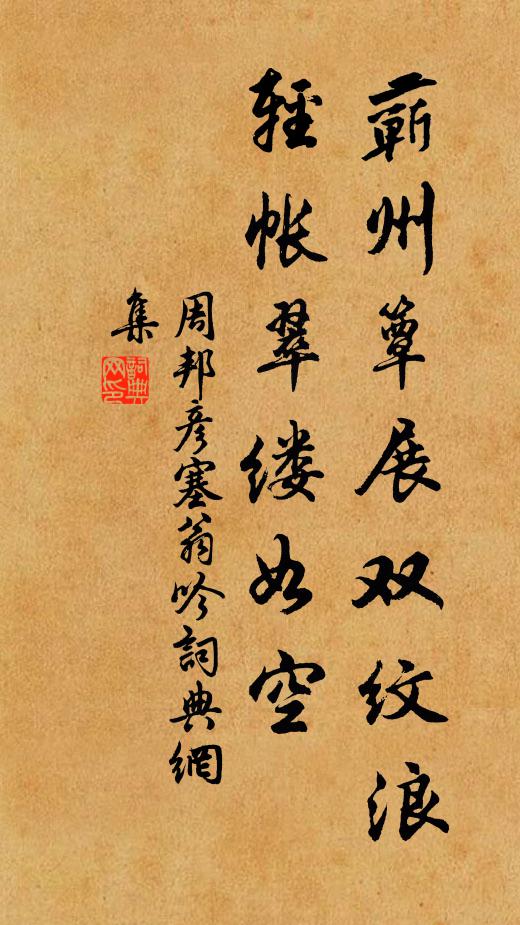 蕲州簟展双纹浪
轻帐翠缕如空
周邦彦塞翁吟詞典網
集
詞典
网印